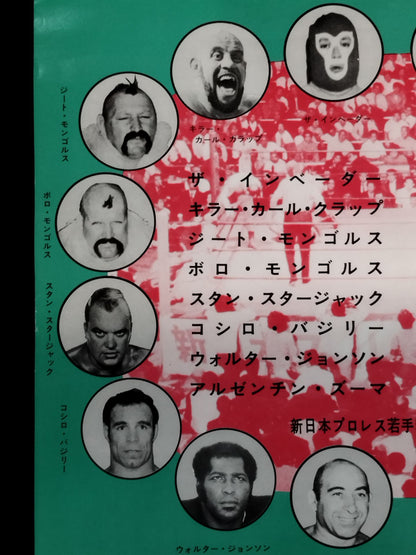 ザ・インベーダー
キラー・
カール・クラップ
ジート・モンゴルス
ボロ・モンゴルス
スタン・スタージャック
コシロ・バジリー
ウォルター・ジョンソン
ザ・インベーダー
キラー・カール・クラップ
ジート・モンゴルス
ボロ・モンゴルス
スタン・スタージャック
コシロ・バジリー
ウォルター・ジョンソン
アルゼンチン・ズーマ
新日本プロレス若手